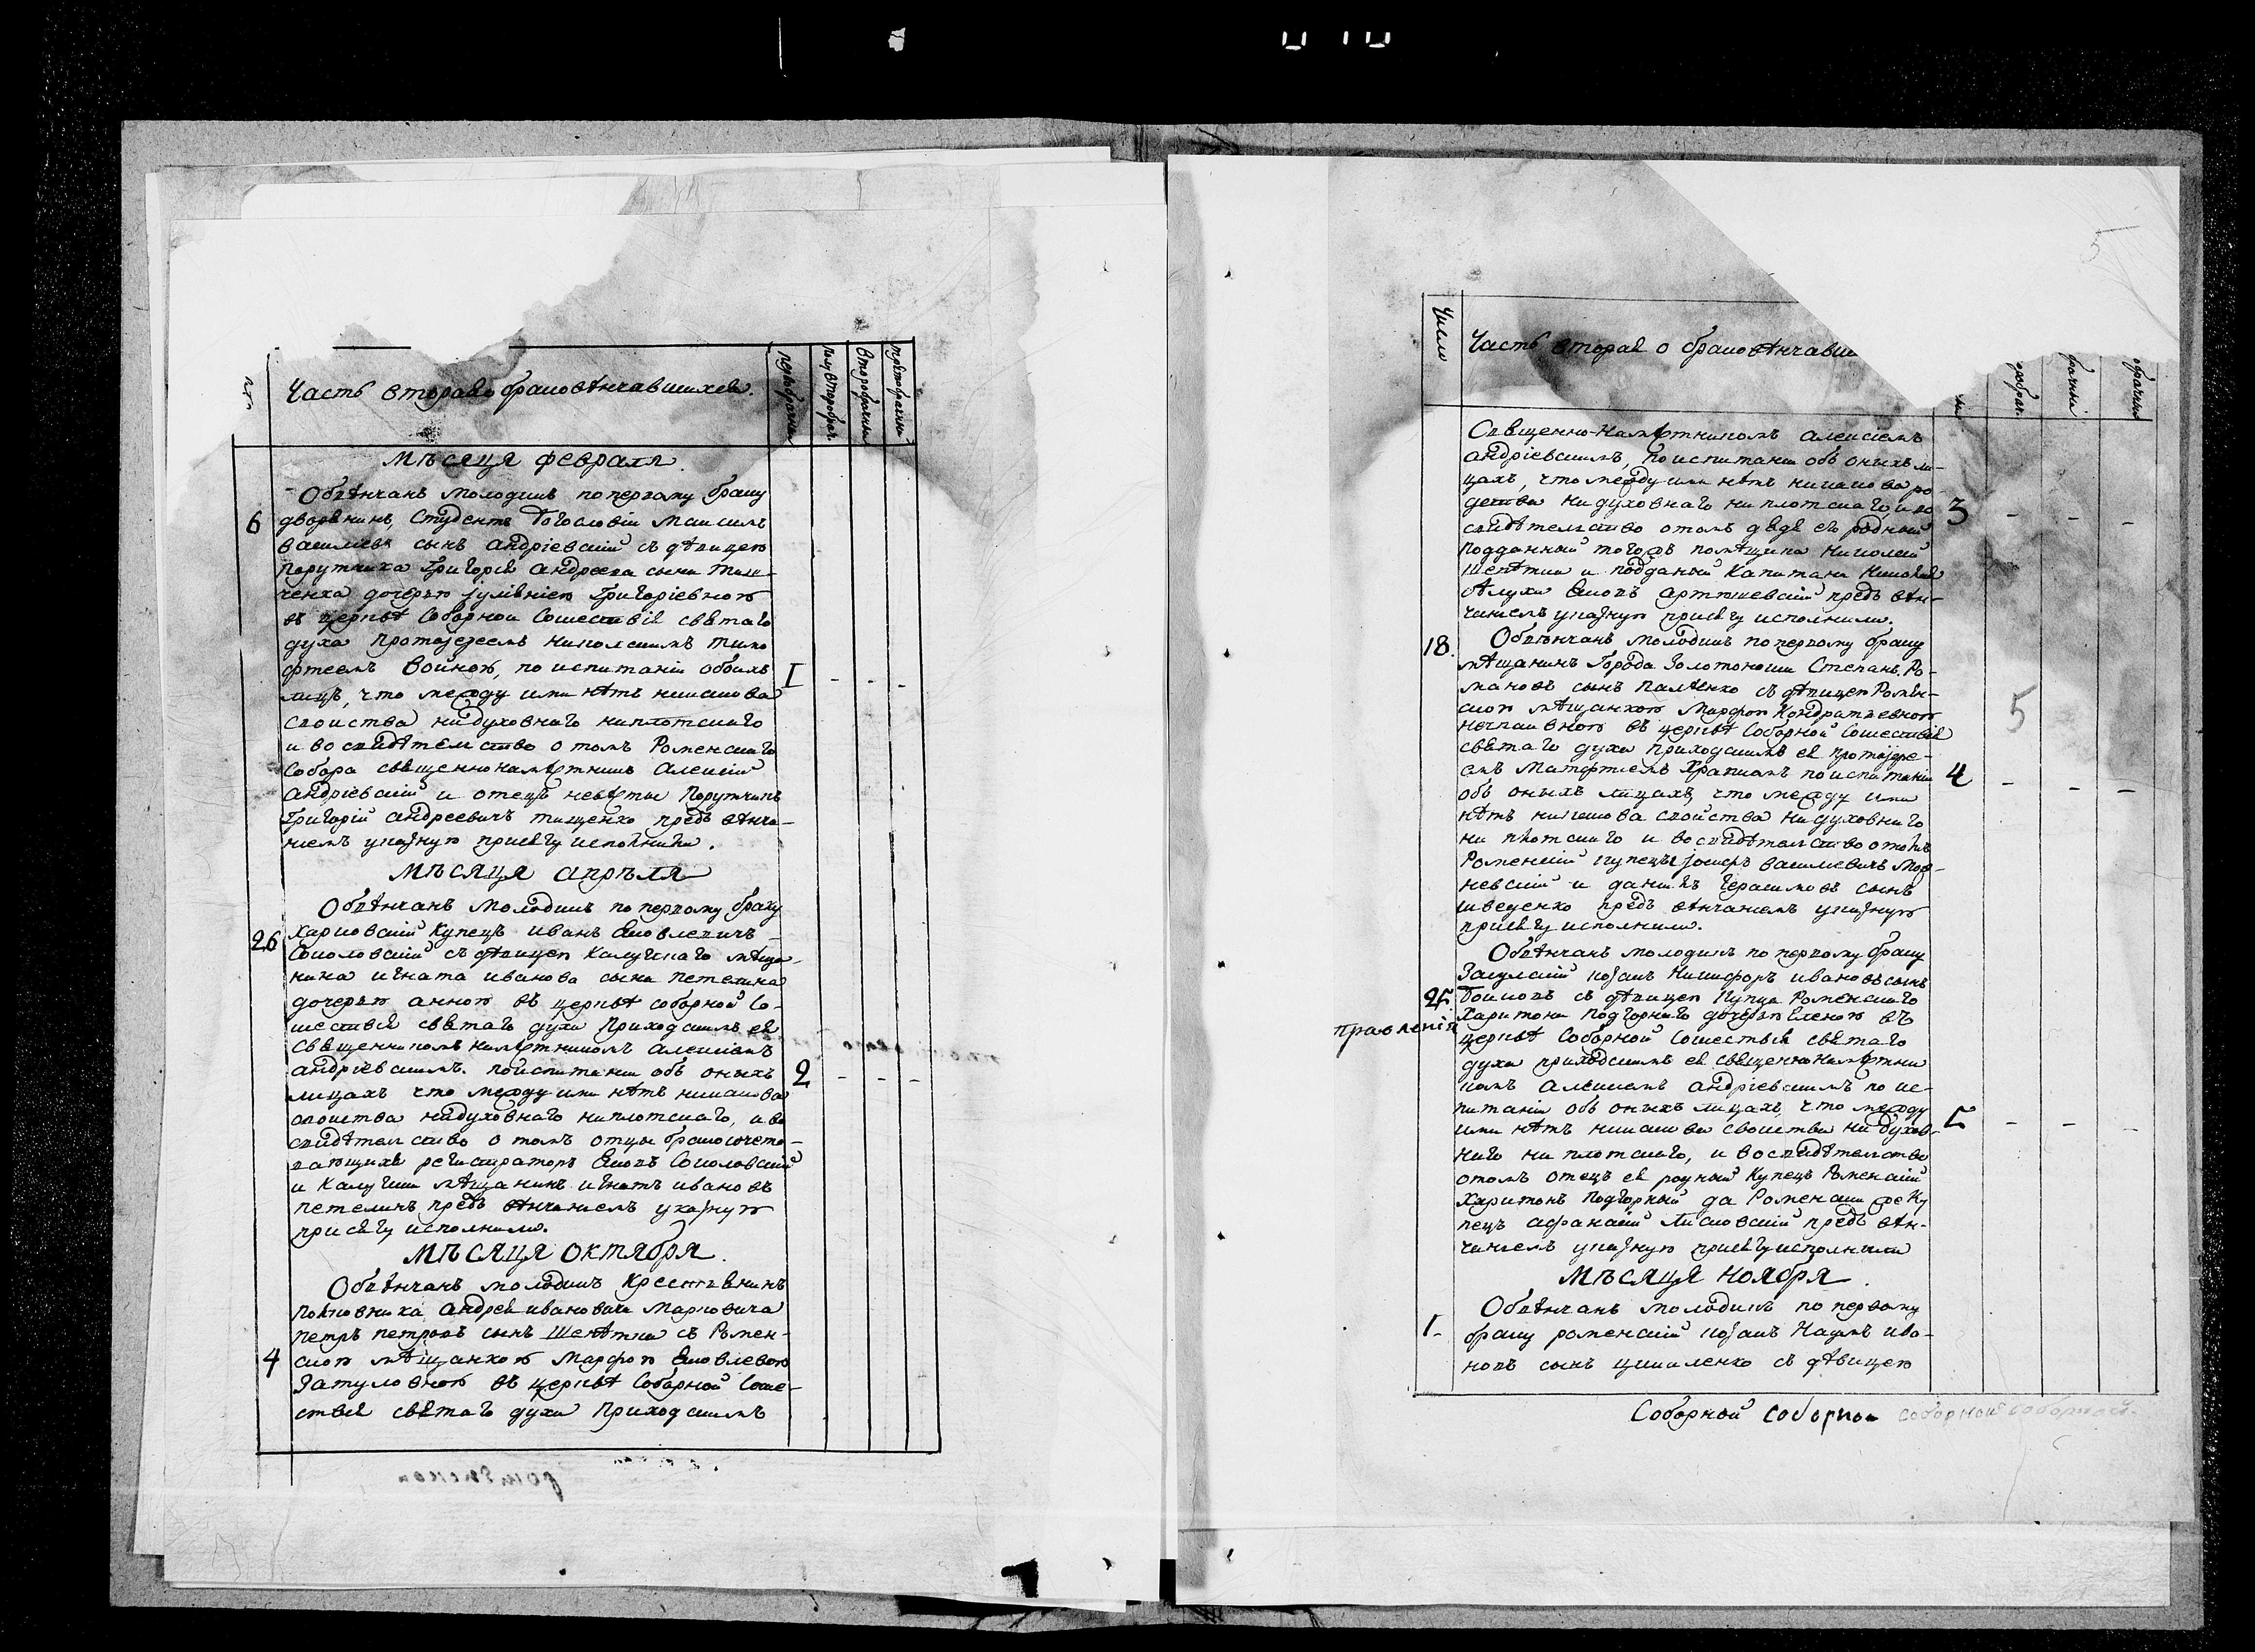 Часть вторая о браковѣнчавшихся.
первобрачни
полувторобрач.
второбрачни
третобрачни
Мѣсяця февраля.
Обвѣнчанъ молодикъ поперваму браку
6
дворянинъ, Студентъ Богословіи Максимъ
Васильевъ сынъ андріевскій съ дѣвицею
Порутчика Григорія андреева сына Тищ-
ченка дочерью іуліянією Григоріевною
въ церквѣ Соборной Сошествія святаго
духа протоіереемъ николскимъ тимо
фтеемъ Войною, по испитаніи обоихъ
лицъ, что между ими нѣтъ никакова
1
своиства нидуховнаго ниплотскаго
и во свидѣтелство о томъ Роменскаго
Собора священнонамѣстникъ Алексій
андріевскій и отецъ невѣсты Порутчикъ
Григорій андреевичъ тищенко предъ вѣнча-
ніемъ указную присягу исполнили.
Мѣсяця апрѣля
Обвѣнчанъ молодикъ по первому браку
26
харковскій Купецъ иванъ Яковлевичъ
Соколовскій съ дѣвицею Калужскаго мѣща-
нина игната иванова сына петелина
дочерью анною въ церквѣ соборной Со-
шествія святаго духа приходскимъ ея
священникомъ намѣстникомъ алексіемъ
андріевскимъ. поиспитаніи объ оныхъ
2
лицахъ что между ими нѣтъ никакова
своиства нидуховнаго ниплотскаго, и во
свидѣтелство о томъ отцы бракосочета-
вающихся регистраторъ Яковъ Соколовскій
и Калужскій мѣщанинъ игнатъ ивановъ
петелинъ предъ вѣнчаніемъ указную
присягу исполнили.
Мѣсяця октября.
Обвѣнчанъ молодикъ Крестянинъ
полковника андрея ивановича Марковича
петръ петровъ сынъ Шепѣтка съ Ромен-
4
скою мѣщанкою Марфою Яковлевою
Затуловною въ церквѣ Соборной Соше-
ствія святаго духа приходскимъ
5
Число
Часть вторая о браковѣнчавши
Священно-намѣстникомъ алексіемъ
андріевскимъ, поиспитаніи объ оныхъ ли-
цахъ, что между ими нѣтъ никакова ро-
дства нидуховнаго ниплотскаго, и во
3
свидѣтелство отомъ дядя его родный
подданный тогожъ помѣщика Николай
Шепѣтка и подданый Капитана Николая
Яковъ предъ вѣн-
чаніемъ указную присягу исполнили.
18.
Обвѣнчанъ молодикъ поперваму браку
мѣщанинъ Города Золотоноши Степанъ Ро-
мановъ сынъ Паленко съ дѣвицею Ромен-
скою мѣщанкою Марфою Кондратьевною
въ церквѣ Соборной Сошествія
святаго духа приходскимъ ея протоіере-
емъ Матфтіемъ поиспитаніи
4
объ оныхъ лицахъ, что между ими
нѣтъ никакова своиства нидуховнаго
ни плотскаго и восвидѣтелство отомъ
Роменскій купецъ іосифъ василіевичъ Мор-
невскій и даніилъ Герасимовъ сынъ
шведенко предъ вѣнчаніемъ указную
присягу исполнили.
Обвѣнчанъ молодикъ по первому браку
Засулскій козакъ Никифоръ ивановъ сынъ
25
Боиковъ съ дѣвицею Купца Роменскаго
Харитона Подгорнаго дочерью Еленою въ
правленій
церквѣ Соборной Сошествія святаго
духа приходскимъ ея священнонамѣстни
комъ алексіемъ андріевскимъ по ис-
питаніи объ оныхъ лицахъ, что между
ими нѣтъ никакова своиства нидухов-
5
наго ни плотскаго, и восвидѣтелство
отомъ отецъ ея родный Купецъ Роменскій
Харитонъ Подгорный да Роменскій же Ку
пецъ афанасій Лисовскій предъ вѣн-
чаніемъ указную присягу исполнили
Мѣсяця ноября.
Обвѣнчанъ молодикъ по первому
1.
браку роменскій козакъ Наумъ ива-
новъ сынъ цикаленко съ дѣвицею
Соборной Соборной соборной соборной